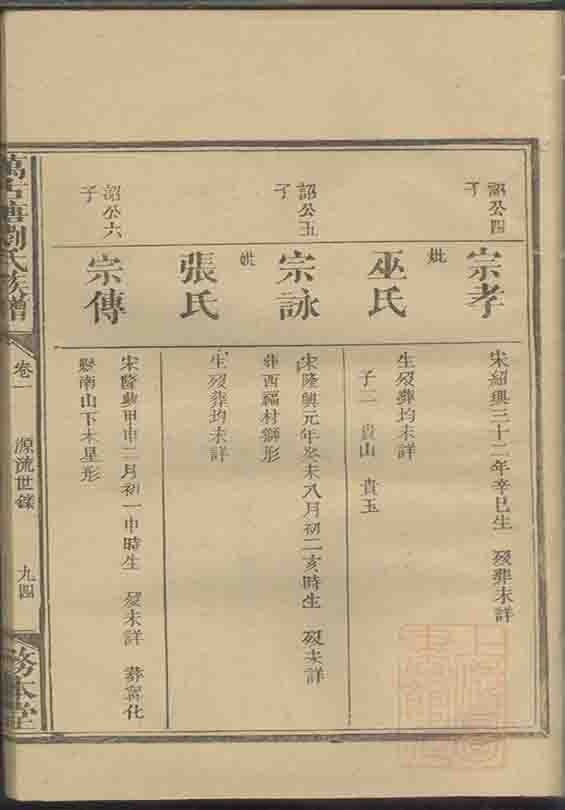 詔公四
子
宗孝
宋紹興三十二年辛巳生 歿葬未詳
妣
巫氏
生歿葬均未詳
子二 貴山 貴玉
詔公五
子
宗詠
宋隆興元年癸未八月初二亥時生 歿未詳
葬西福村獅形
妣
張氏
生歿葬均未詳
詔公六
子
宗傳
宋隆興甲申二月初一申時生 歿未詳 葬寧化
縣南山下木星形
劉氏族譜
卷一
源流世錄
九四
務本堂